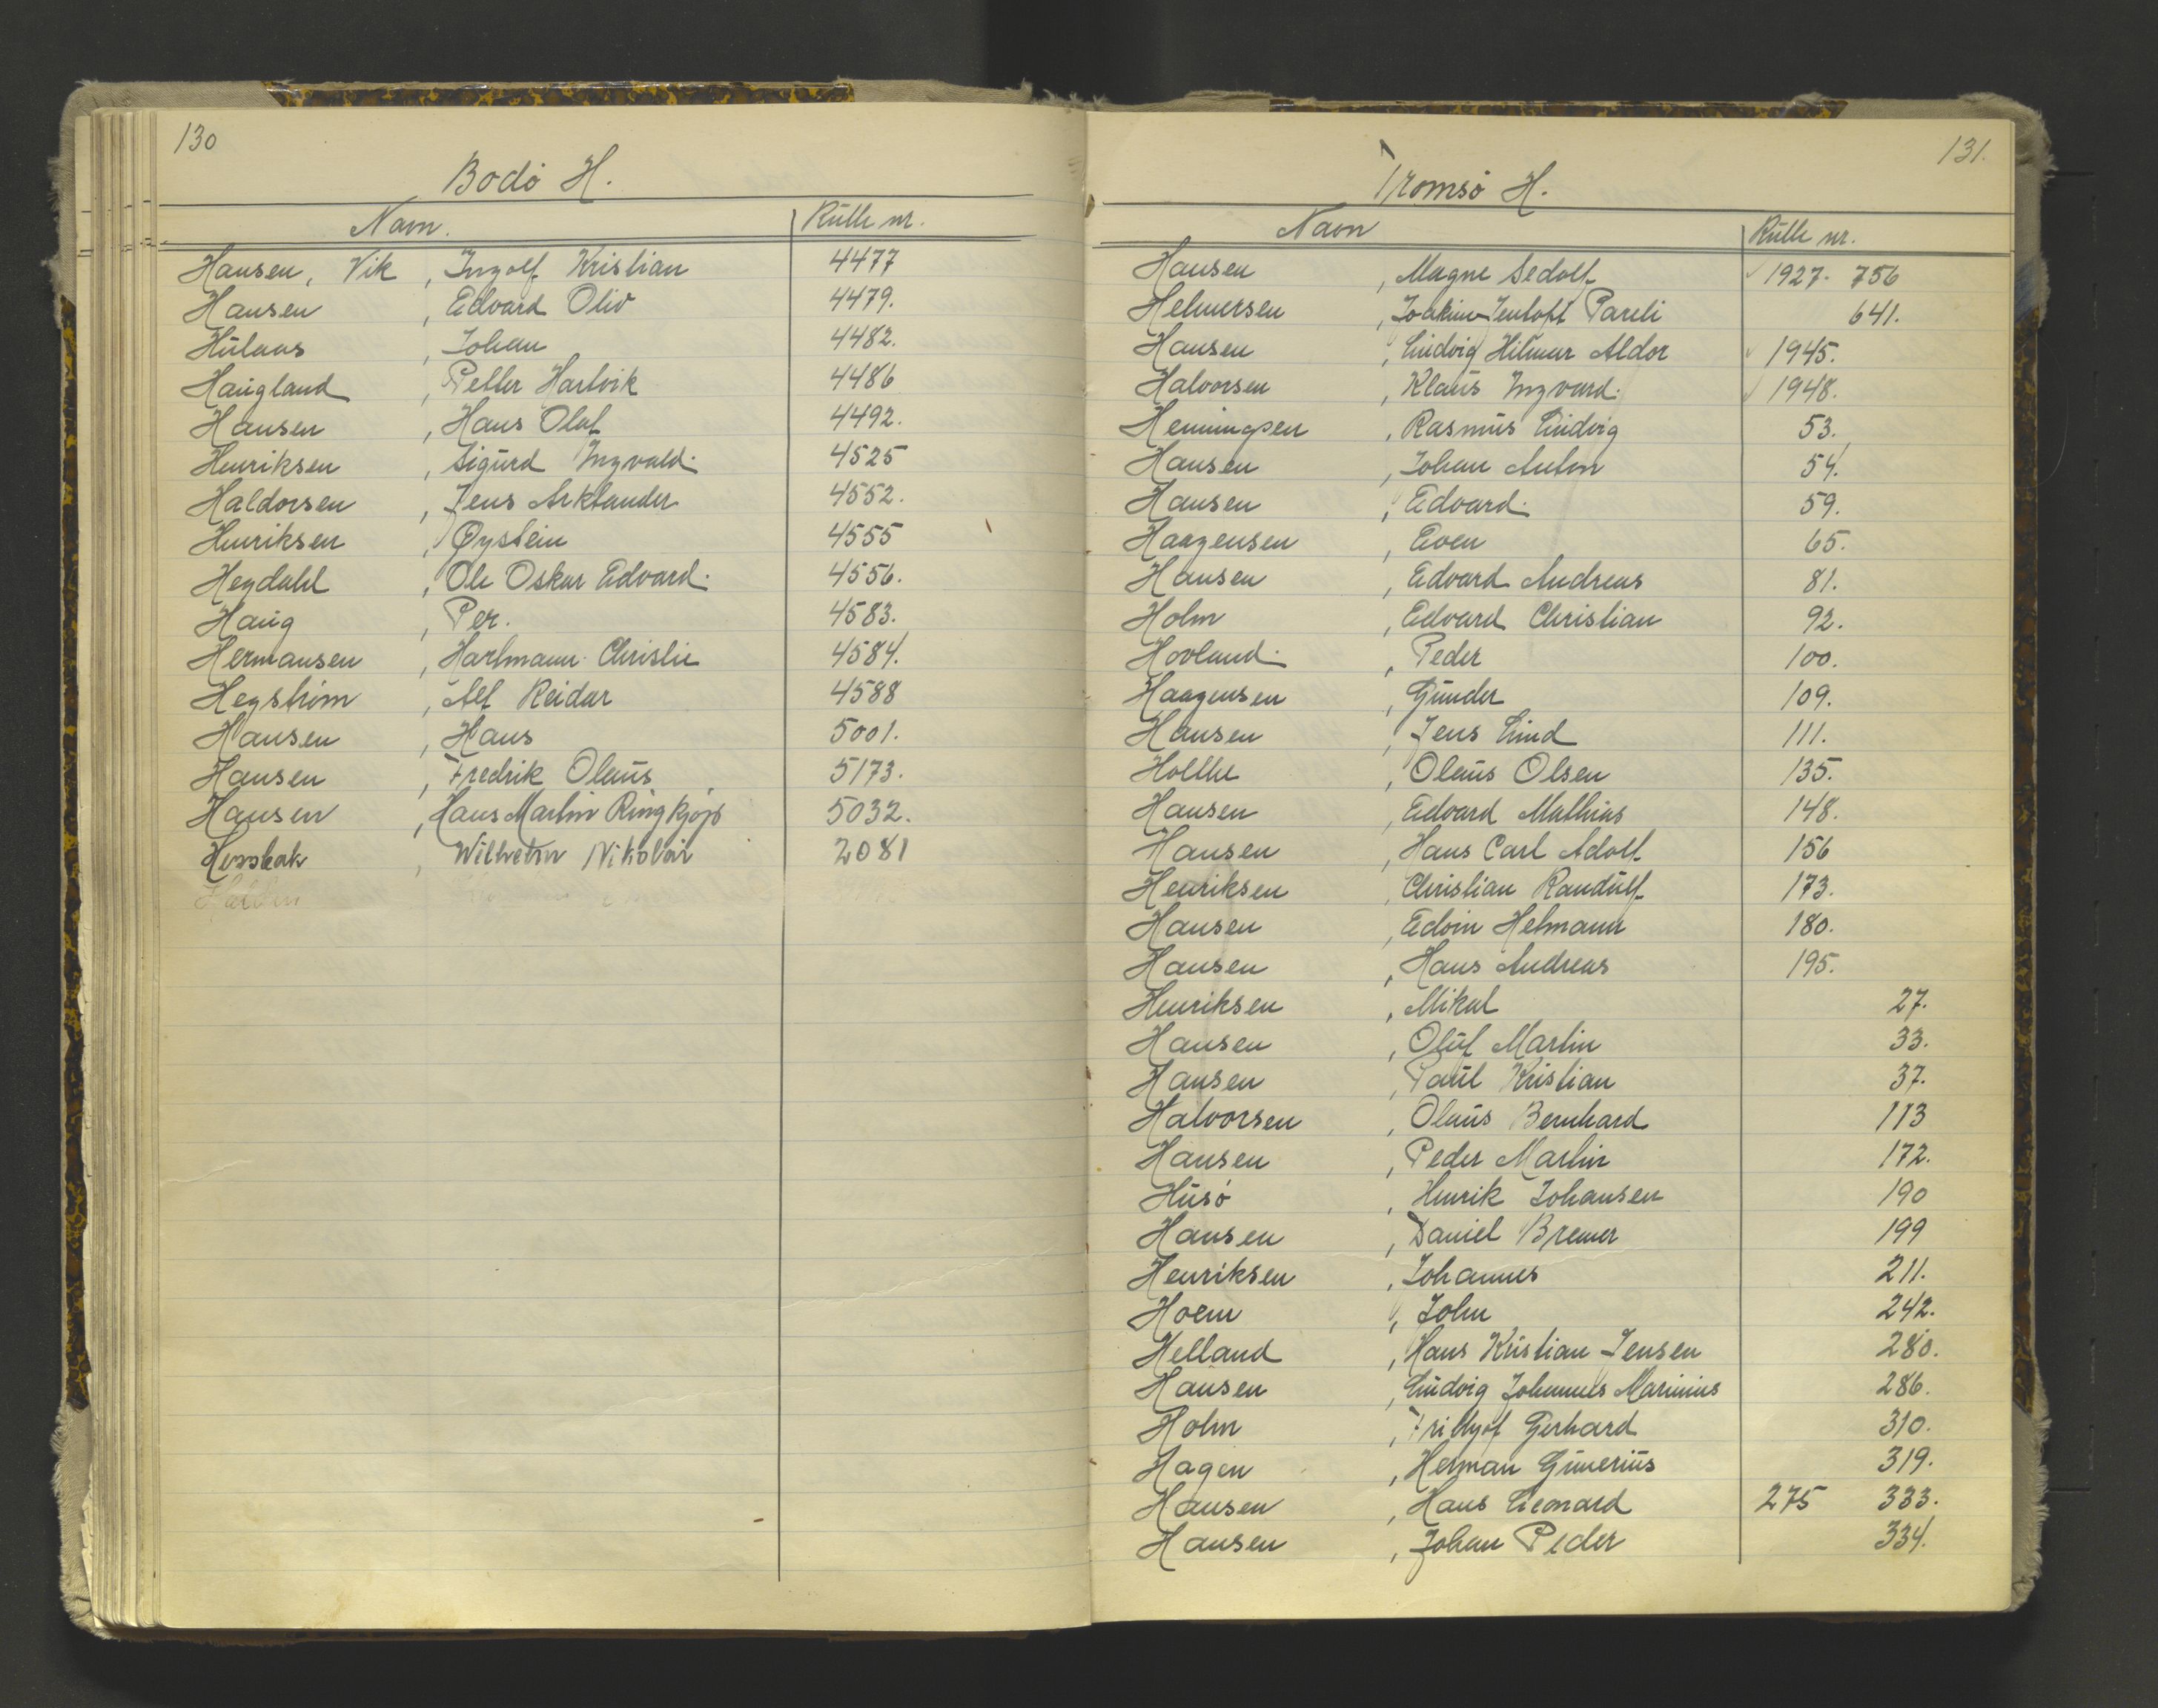 130
Bodø H.
Navn. Rulle nr.
Hansen, Vik, Ingolf Kristian 4477
Hansen, Edvard Oliv 4479.
Hulaas, Johan 4482.
Haugland, Petter Hartvik 4486
Hansen, Hans Olaf 4492.
Henriksen, Sigurd Ingvald. 4525
Haldorsen, Jens Arktander 4552.
Henriksen, Øystein 4555
Hegdahl, Ole Oskar Edvard. 4556.
Haug, Per. 4583.
Hermansen, Hartmann Christie 4584.
Hegstrøm, Alf Reidar 4588
Hansen, Hans 5001.
Hansen, Fredrik Olaus 5173.
Hansen, Hans Martin Ringkjøp 5032.
Wilhelm Nikolai 2081
131.
Tromsø H.
Navn Rulle nr.
Hansen, Magne Sedolf 1927. 756
Helmersen, Joakim Jentoft Pareli 641.
Hansen, Ludvig Hilmar Aldor 1945.
Halvorsen, Klaus Ingvard. 1948.
Henningsen, Rasmus Ludvig 53.
Hansen, Johan Anton 54.
Hansen, Edvard. 59.
Haagensen, Even 65.
Hansen, Edvard Andreas 81.
Holm, Edvard Christian 92.
Hovland., Peder 100.
Haagensen, Gunder 109.
Hansen, Jens Lind 111.
Holthe, Olaus Olsen 135.
Hansen, Edvard Mathias 148.
Hansen, Hans Carl Adolf 156
Henriksen, Christian Randulf 173.
Hansen, Edvin Helmann 180.
Hansen, Hans Andreas 195.
Henriksen, Mikal 27.
Hansen, Oluf Martin 33.
Hansen, Paul Kristian 37.
Halvorsen, Olaus Bernhard 113
Hansen, Peder Martin 172.
Husø, Henrik Johansen 190
Hansen, Daniel Bremer 199
Henriksen, Johannes 211.
Hoem, John 242.
Helland, Hans Kristian Jensen 280.
Hansen, Ludvig Johannes Marinius 286.
Holm, Frithjof Gerhard 310.
Hagen, Herman Gunerius 319.
Hansen, Hans Leonard 275 333.
Hansen, Johan Peder 334.